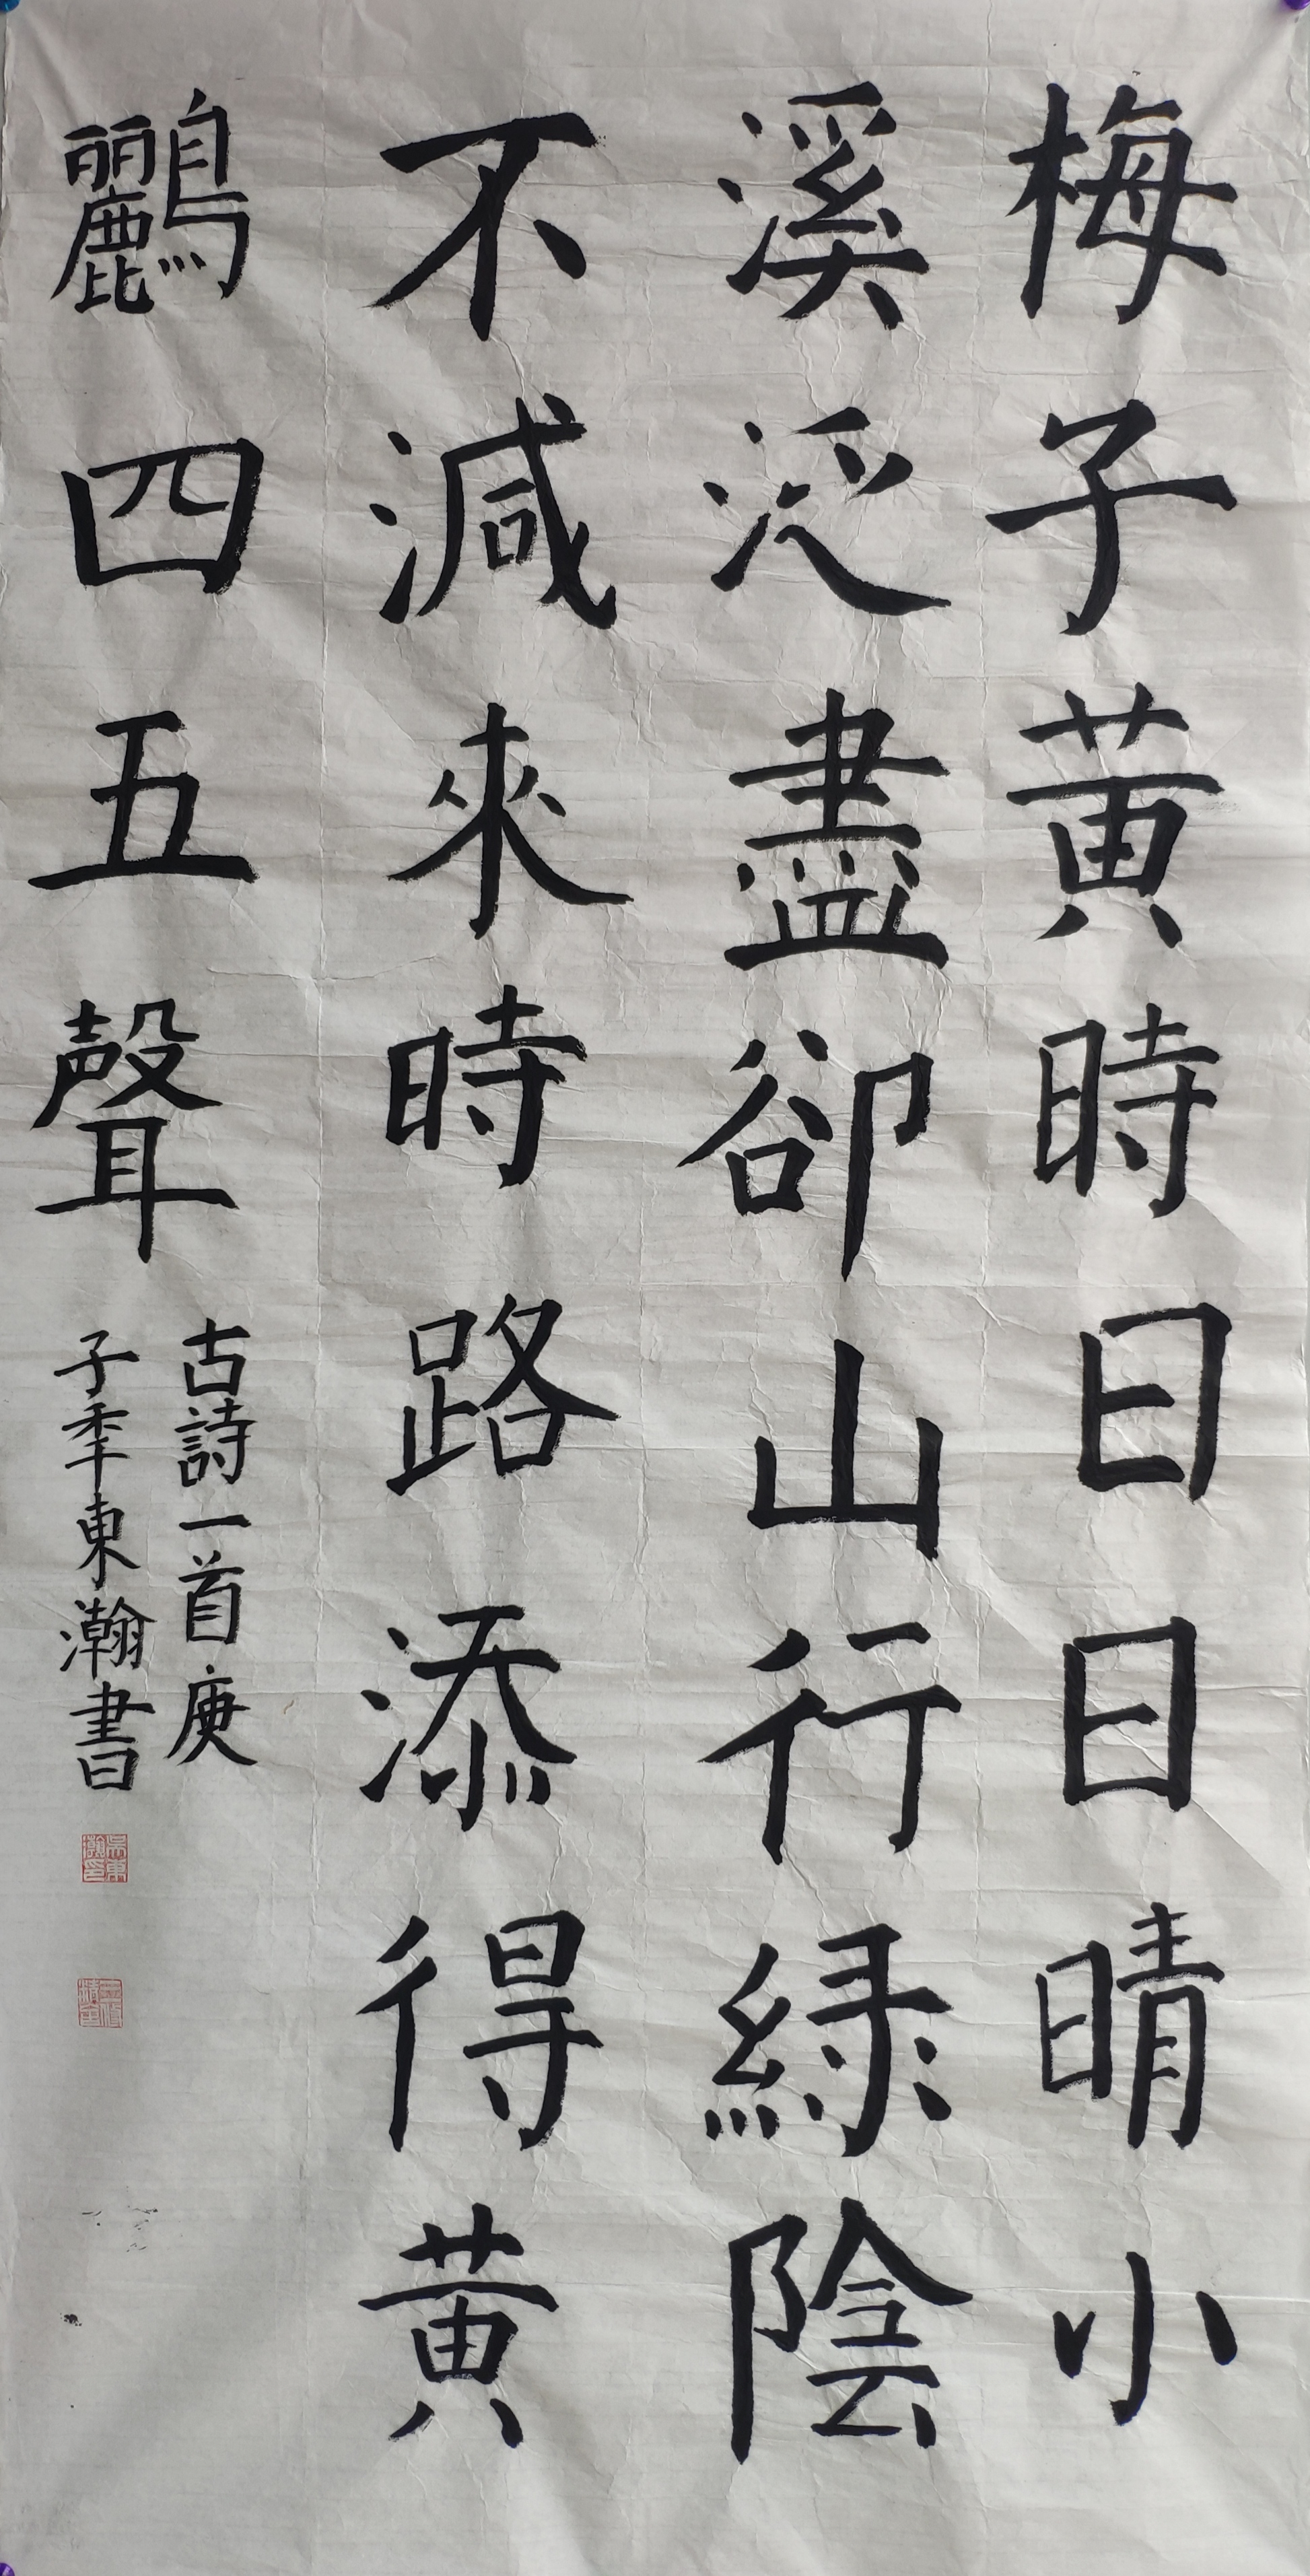 梅子黄時日日晴小
溪泛盡卻山行緑陰
不減來時路添得黄
鸝四五聲
古詩一首庚
子秊東瀚書
吴東瀚印